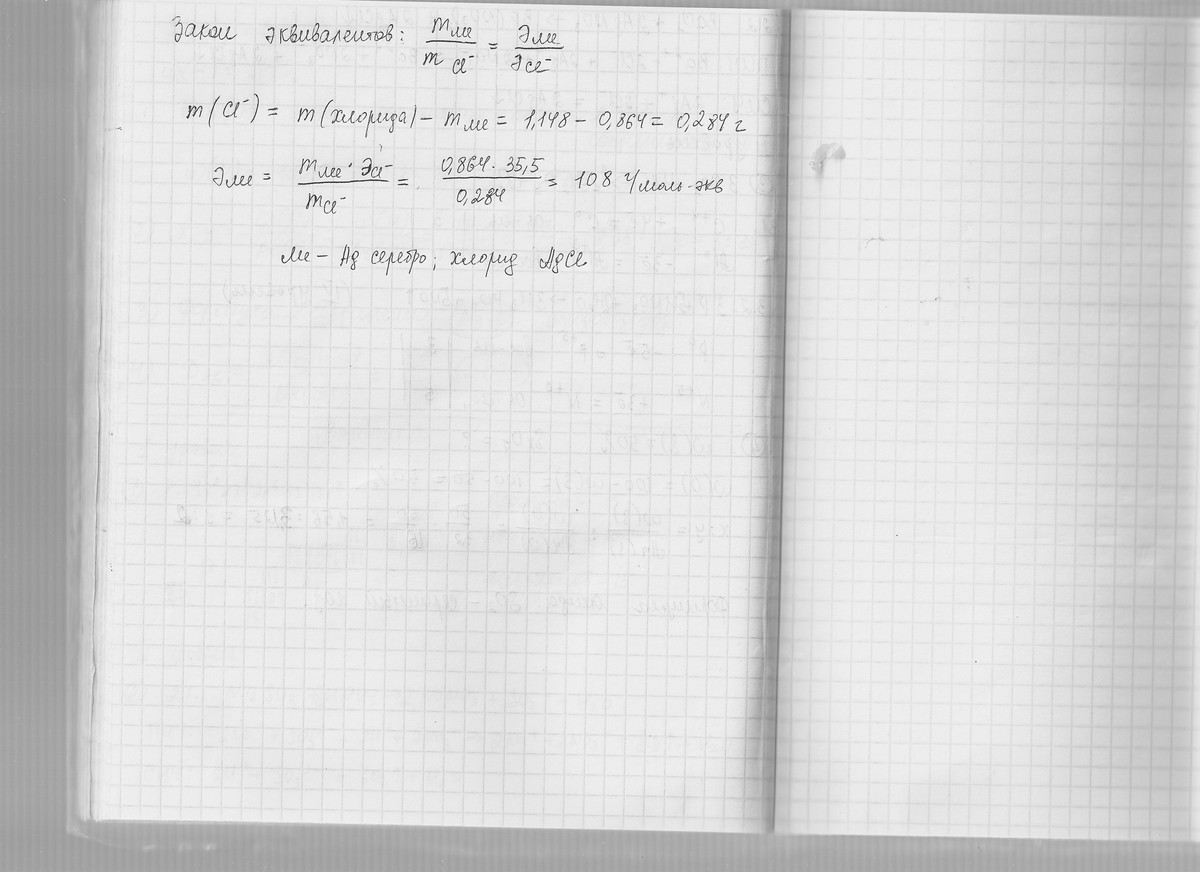 Закон эквивалентов: mме / m Cl⁻ = Эме / ЭCl⁻
m(Cl⁻) = m(хлорида) – mме = 1,148 – 0,864 = 0,284 г
Эме = mме · ЭCl⁻ / mCl⁻ = 0,864 · 35,5 / 0,284 = 108 г/моль-экв
Ме – Ag серебро; хлорид AgCl